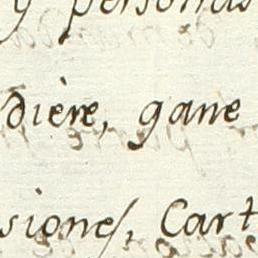 y personas
diere, gane
siones, Cart